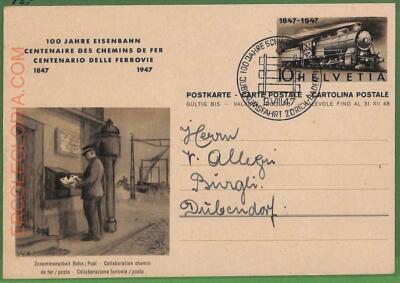 100 JAHRE EISENBAHN
CENTENAIRE DES CHEMINS DE FER
CENTENARIO DELLE FERROVIE
1847 1947
1847-1947
10 HELVETIA
100 JAHRE
JUBILÄUMSFAHRT ZÜRICH-BADEN
VIII.47
POSTKARTE - CARTE POSTALE - CARTOLINA POSTALE
GÜLTIG BIS - FINO AL 31 XII 48
Herrn
V. Allegri
Bürgli
Dübendorf
Zusammenarbeit Bahn/Post - Collaboration chemin
de fer/poste - Collaborazione ferrovia/posta
ERCOLEGLORIA.COM